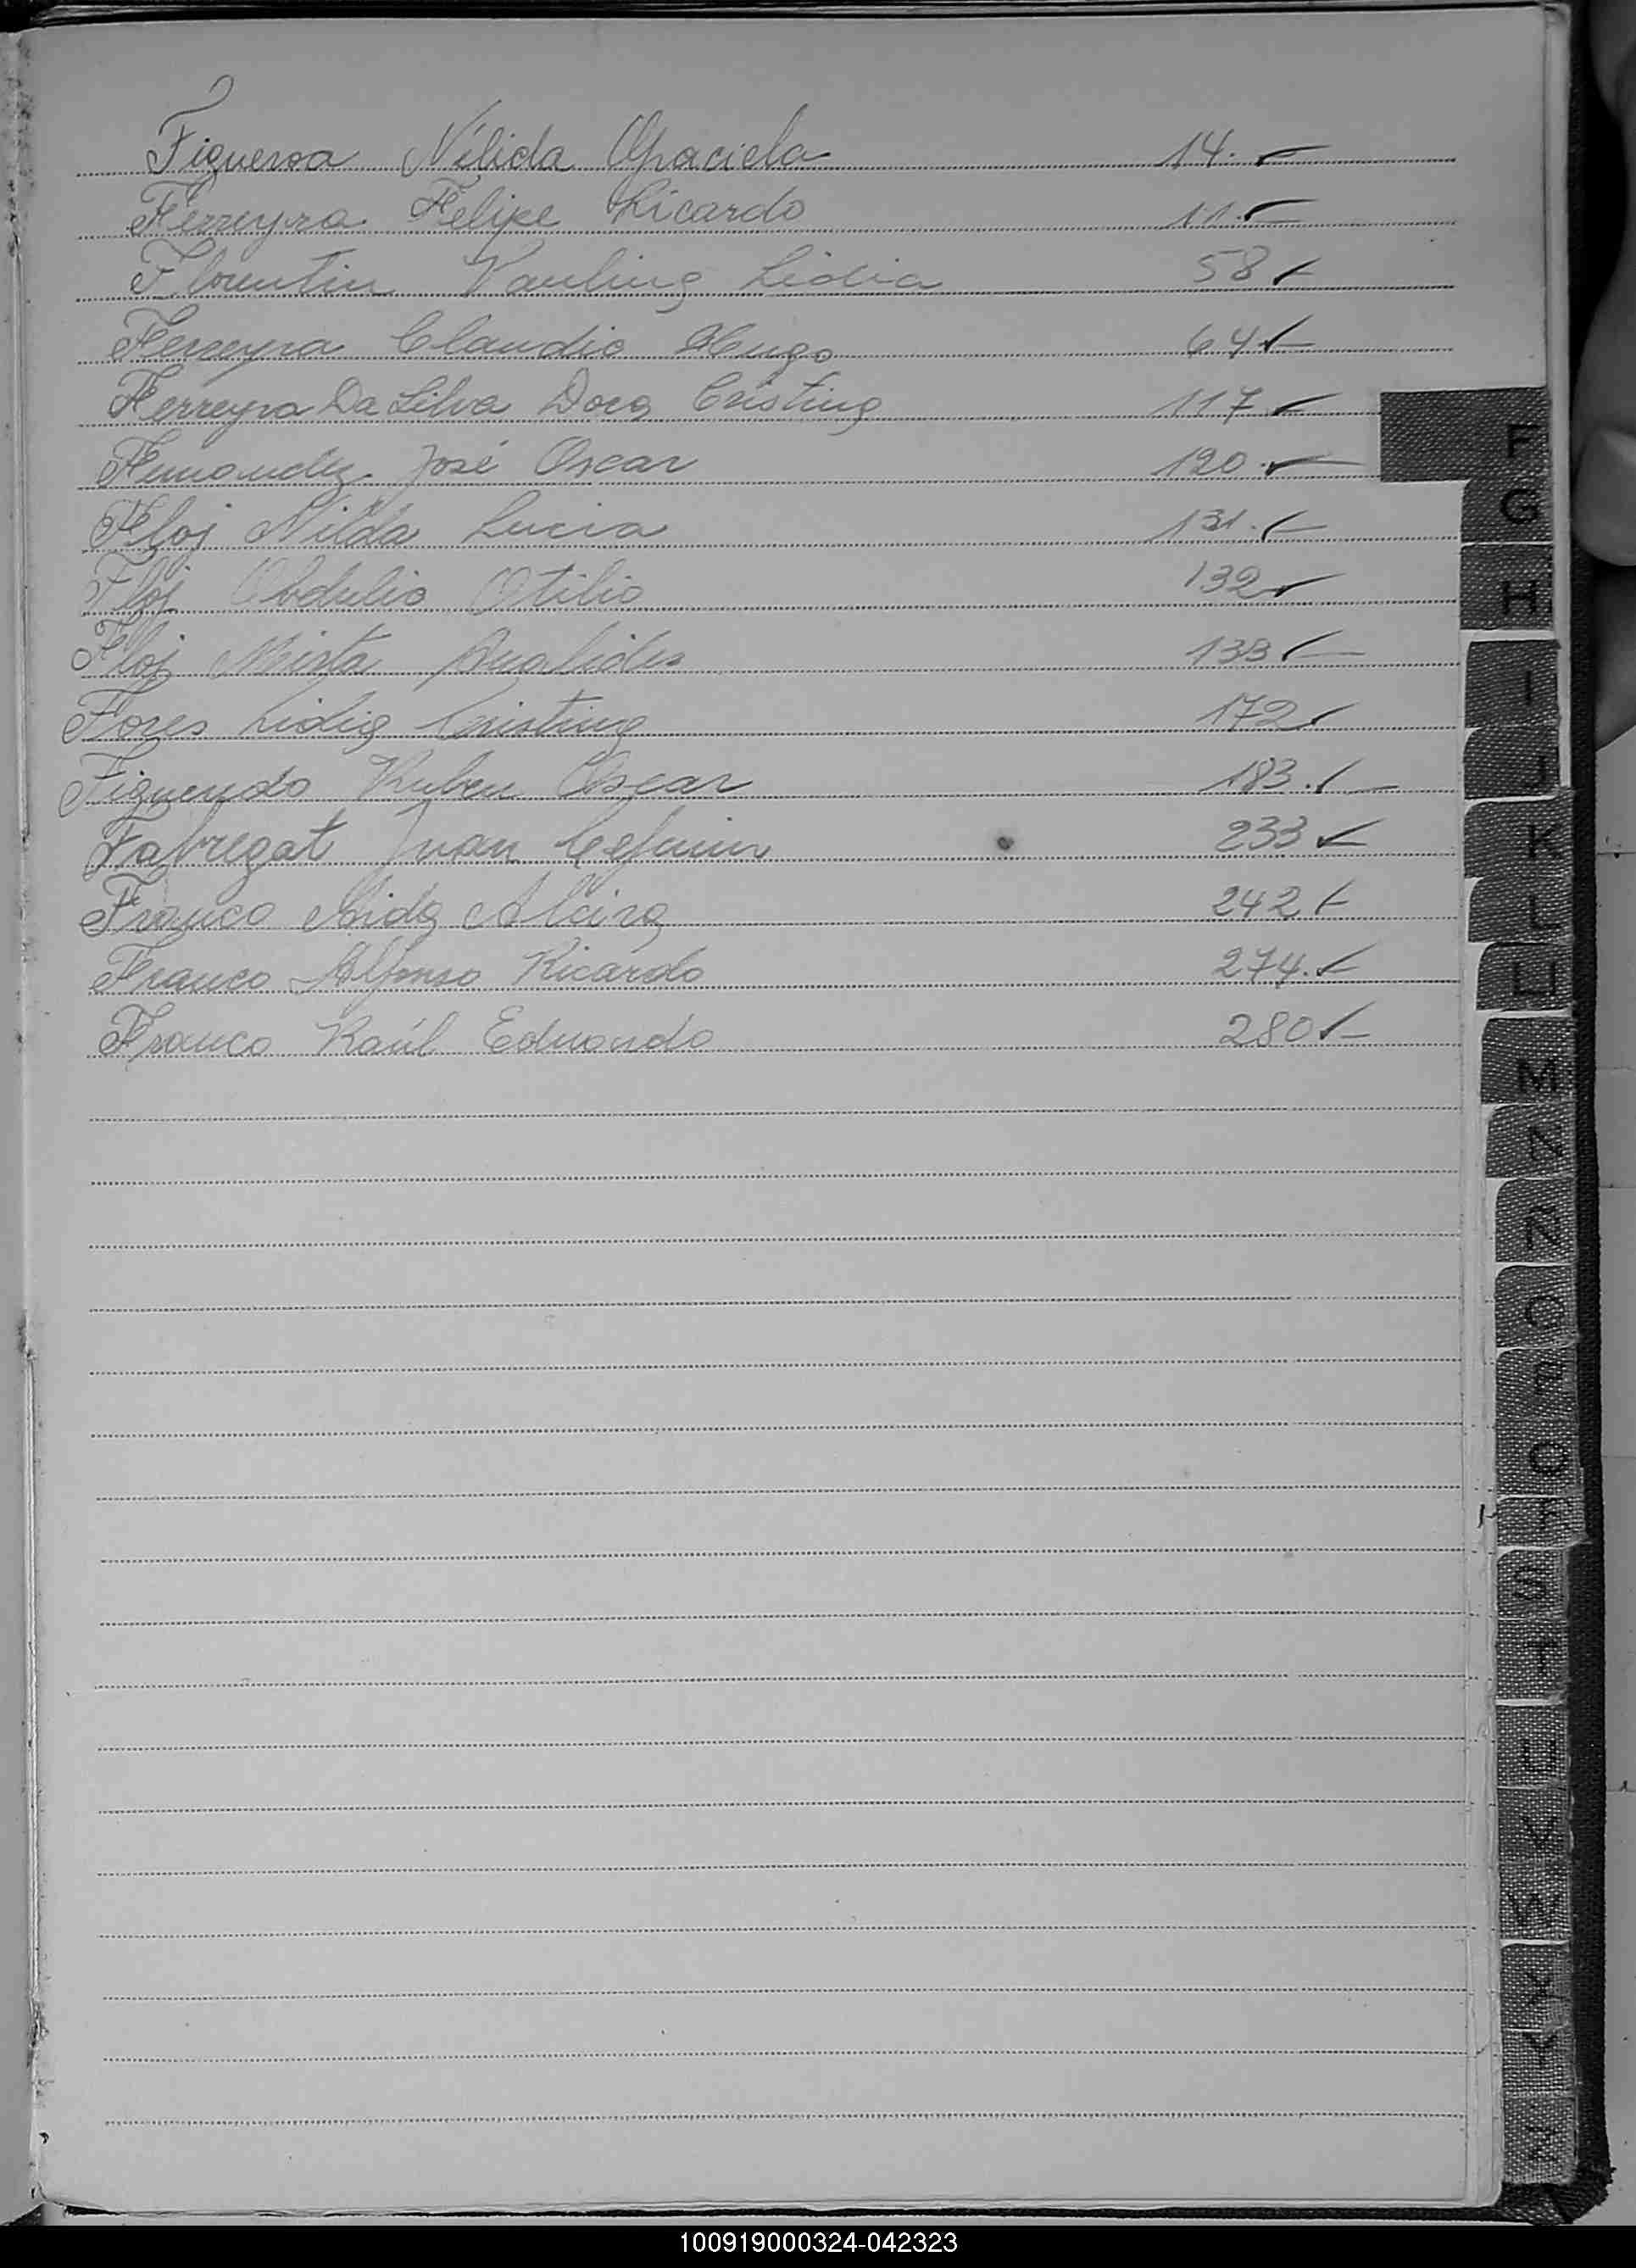 Figueroa Nélida Graciela 14. ✓
Ferreyra Felipe Ricardo 11. ✓
Florentin Pauling Lidia 58 ✓
Ferreyra Claudio Hugo 64 ✓
Ferreyra Da Silva Dora Cristina 117 ✓
Fernandez José Oscar 120. ✓
Floj Nilda Lucia 131. ✓
Floj Obdulio Otilio 132 ✓
Floj Mirta 133 ✓
Flores Lidia Cristina 172 ✓
Figueredo Ruben Oscar 183. ✓
Fabregat Juan 233 ✓
Franco Aida Alcira 242 ✓
Franco Alfonso Ricardo 274. ✓
Franco Raúl Eduardo 280 ✓
F
G
H
I
J
K
L
LL
M
N
Ñ
O
P
Q
R
S
T
U
V
W
X
Y
Z
100919000324-042323